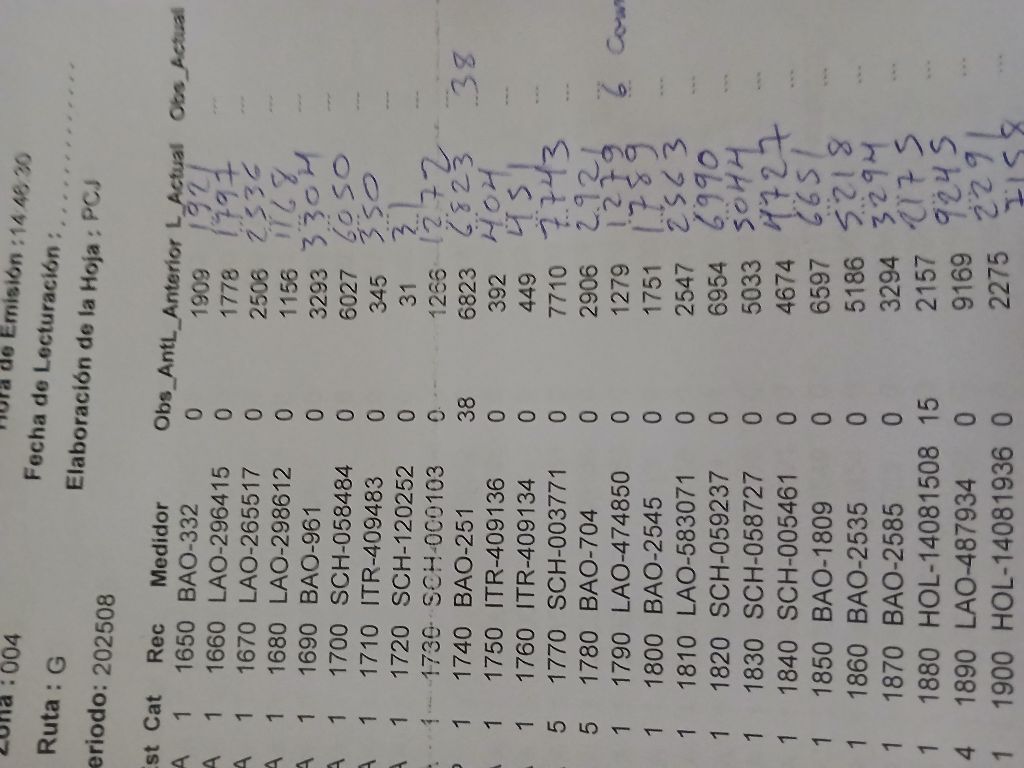 Zona : 004 Hora de Emisión : 14:48:30
Ruta : G Fecha de Lecturación : ............
eriodo: 202508 Elaboración de la Hoja : PCJ
Est Cat Rec Medidor Obs_Ant L_Anterior L_Actual Obs_Actual
A 1 1650 BAO-332 0 1909 1921
A 1 1660 LAO-296415 0 1778 1797 ...
A 1 1670 LAO-265517 0 2506 2536 ...
A 1 1680 LAO-298612 0 1156 1168 ...
A 1 1690 BAO-961 0 3293 3304 ...
A 1 1700 SCH-058484 0 6027 6050 ...
A 1 1710 ITR-409483 0 345 350 ...
A 1 1720 SCH-120252 0 31 31 ...
1 1730 SCH-000103 0 1266 1272 ...
1 1740 BAO-251 38 6823 6823 38
A 1 1750 ITR-409136 0 392 404 ...
1 1760 ITR-409134 0 449 451 ...
5 1770 SCH-003771 0 7710 7743 ...
5 1780 BAO-704 0 2906 2921
1 1790 LAO-474850 0 1279 1279 6
1 1800 BAO-2545 0 1751 1789 ...
1 1810 LAO-583071 0 2547 2563 ...
1 1820 SCH-059237 0 6954 6990 ...
1 1830 SCH-058727 0 5033 5044 ...
1 1840 SCH-005461 0 4674 4727 ...
1 1850 BAO-1809 0 6597 6651 ...
1 1860 BAO-2535 0 5186 5218 ...
1 1870 BAO-2585 0 3294 3294 ...
1 1880 HOL-14081508 15 2157 2175 ...
4 1890 LAO-487934 0 9169 9245 ...
1 1900 HOL-14081936 0 2275 2291 ...